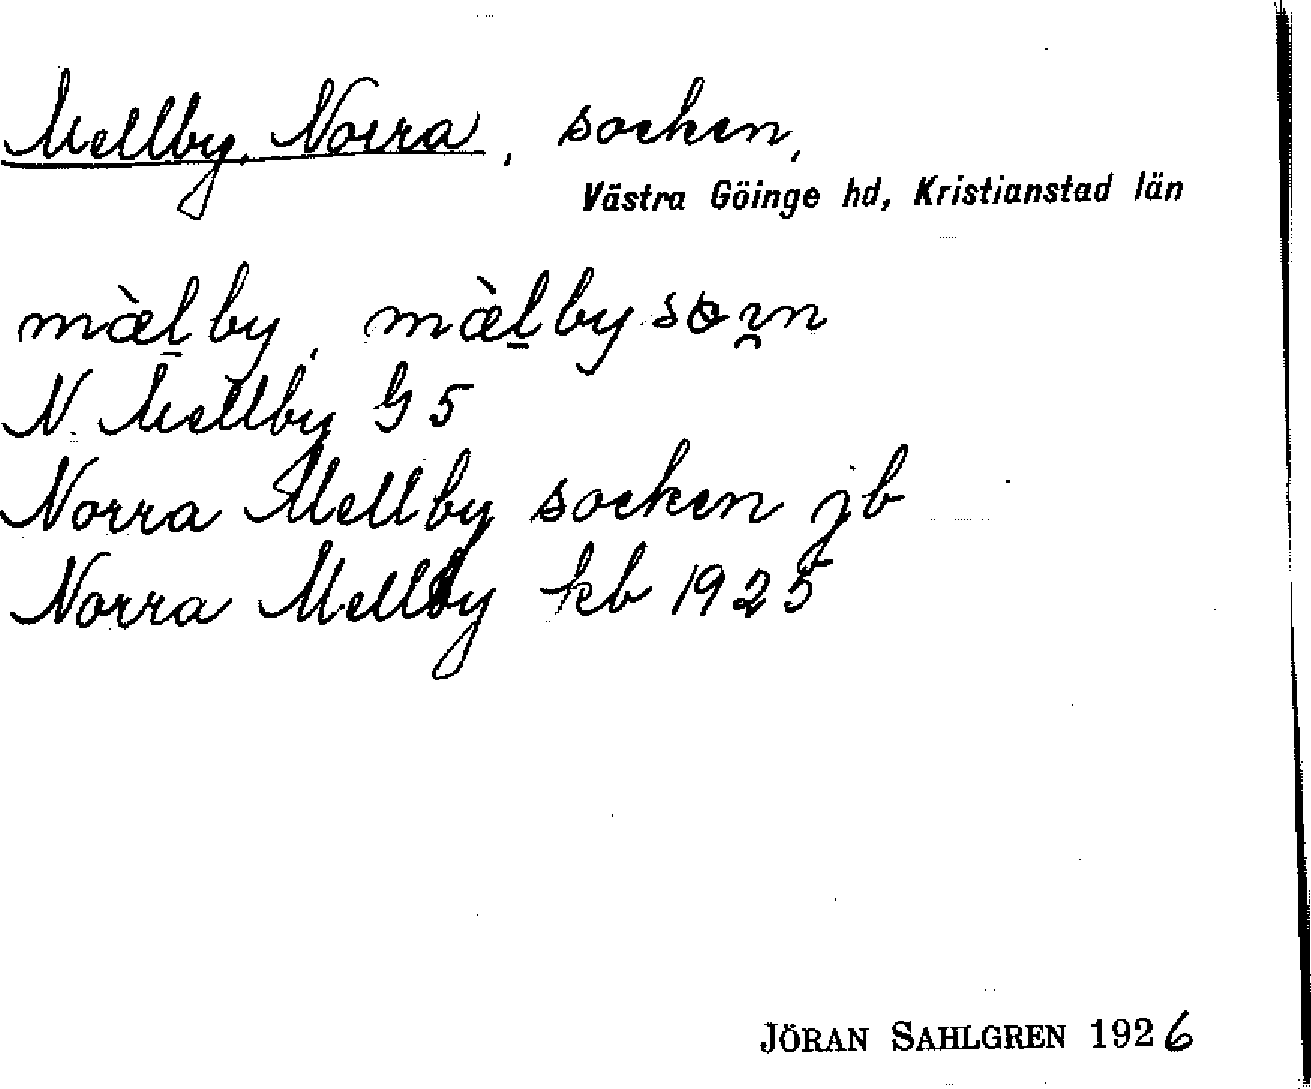 Mellby, Norra, socken,
Västra Göinge hd, Kristianstad län
mæ̀l̠by, mæ̀l̠by
N. Mellby G 5
Norra Mellby socken jb
Norra Mellby kb 1925
JÖRAN SAHLGREN 1926